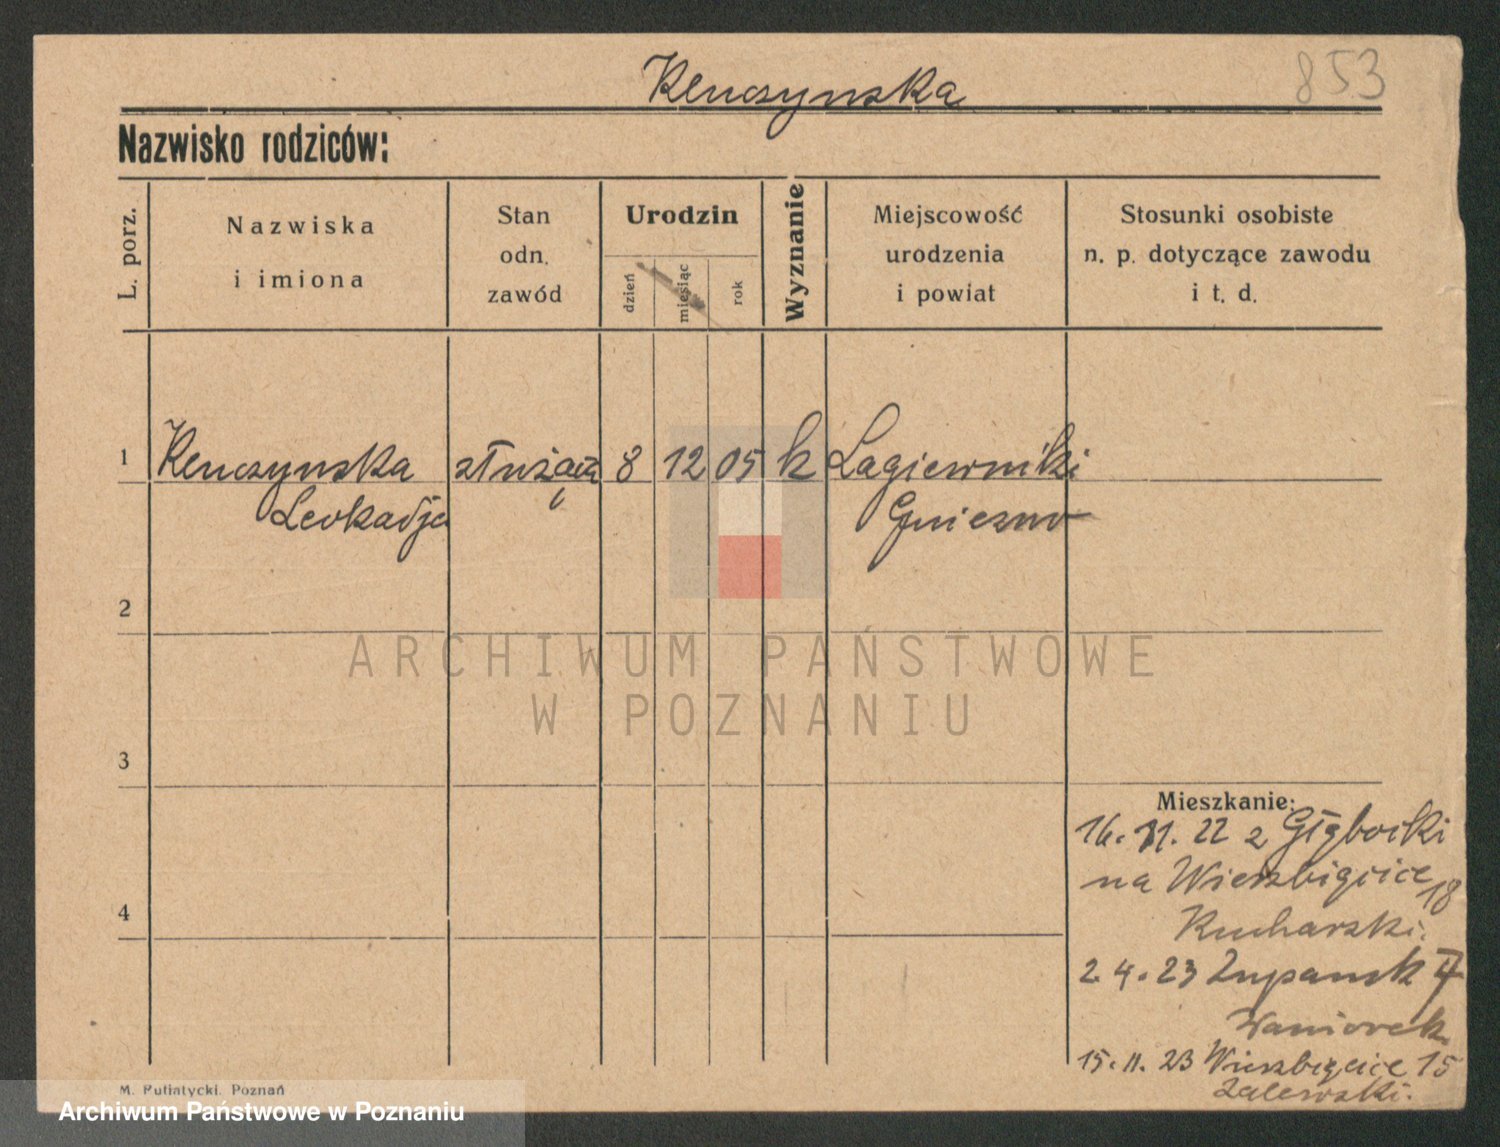 853
Kenczynska
Nazwisko rodziców:
L. porz.
Nazwiska
i imiona
Stan
odn.
zawód
Urodzin
dzień
miesiąc
rok
Wyznanie
Miejscowość
urodzenia
i powiat
Stosunki osobiste
n. p. dotyczące zawodu
i t. d.
1 Kenczynska służąca 8 12 05 k Lagiewniki
Leokadja Gniezno
2
ARCHIWUM PAŃSTWOWE
W POZNANIU
3
Mieszkanie:
16. 11. 22 z Głębocki
na Wierzbięcice 18
Kucharski.
4
2 4. 23 Zupansk
15. 11. 23 Wierzbięcice 15
Zalewski.
M. Putiatycki. Poznań
Archiwum Państwowe w Poznaniu